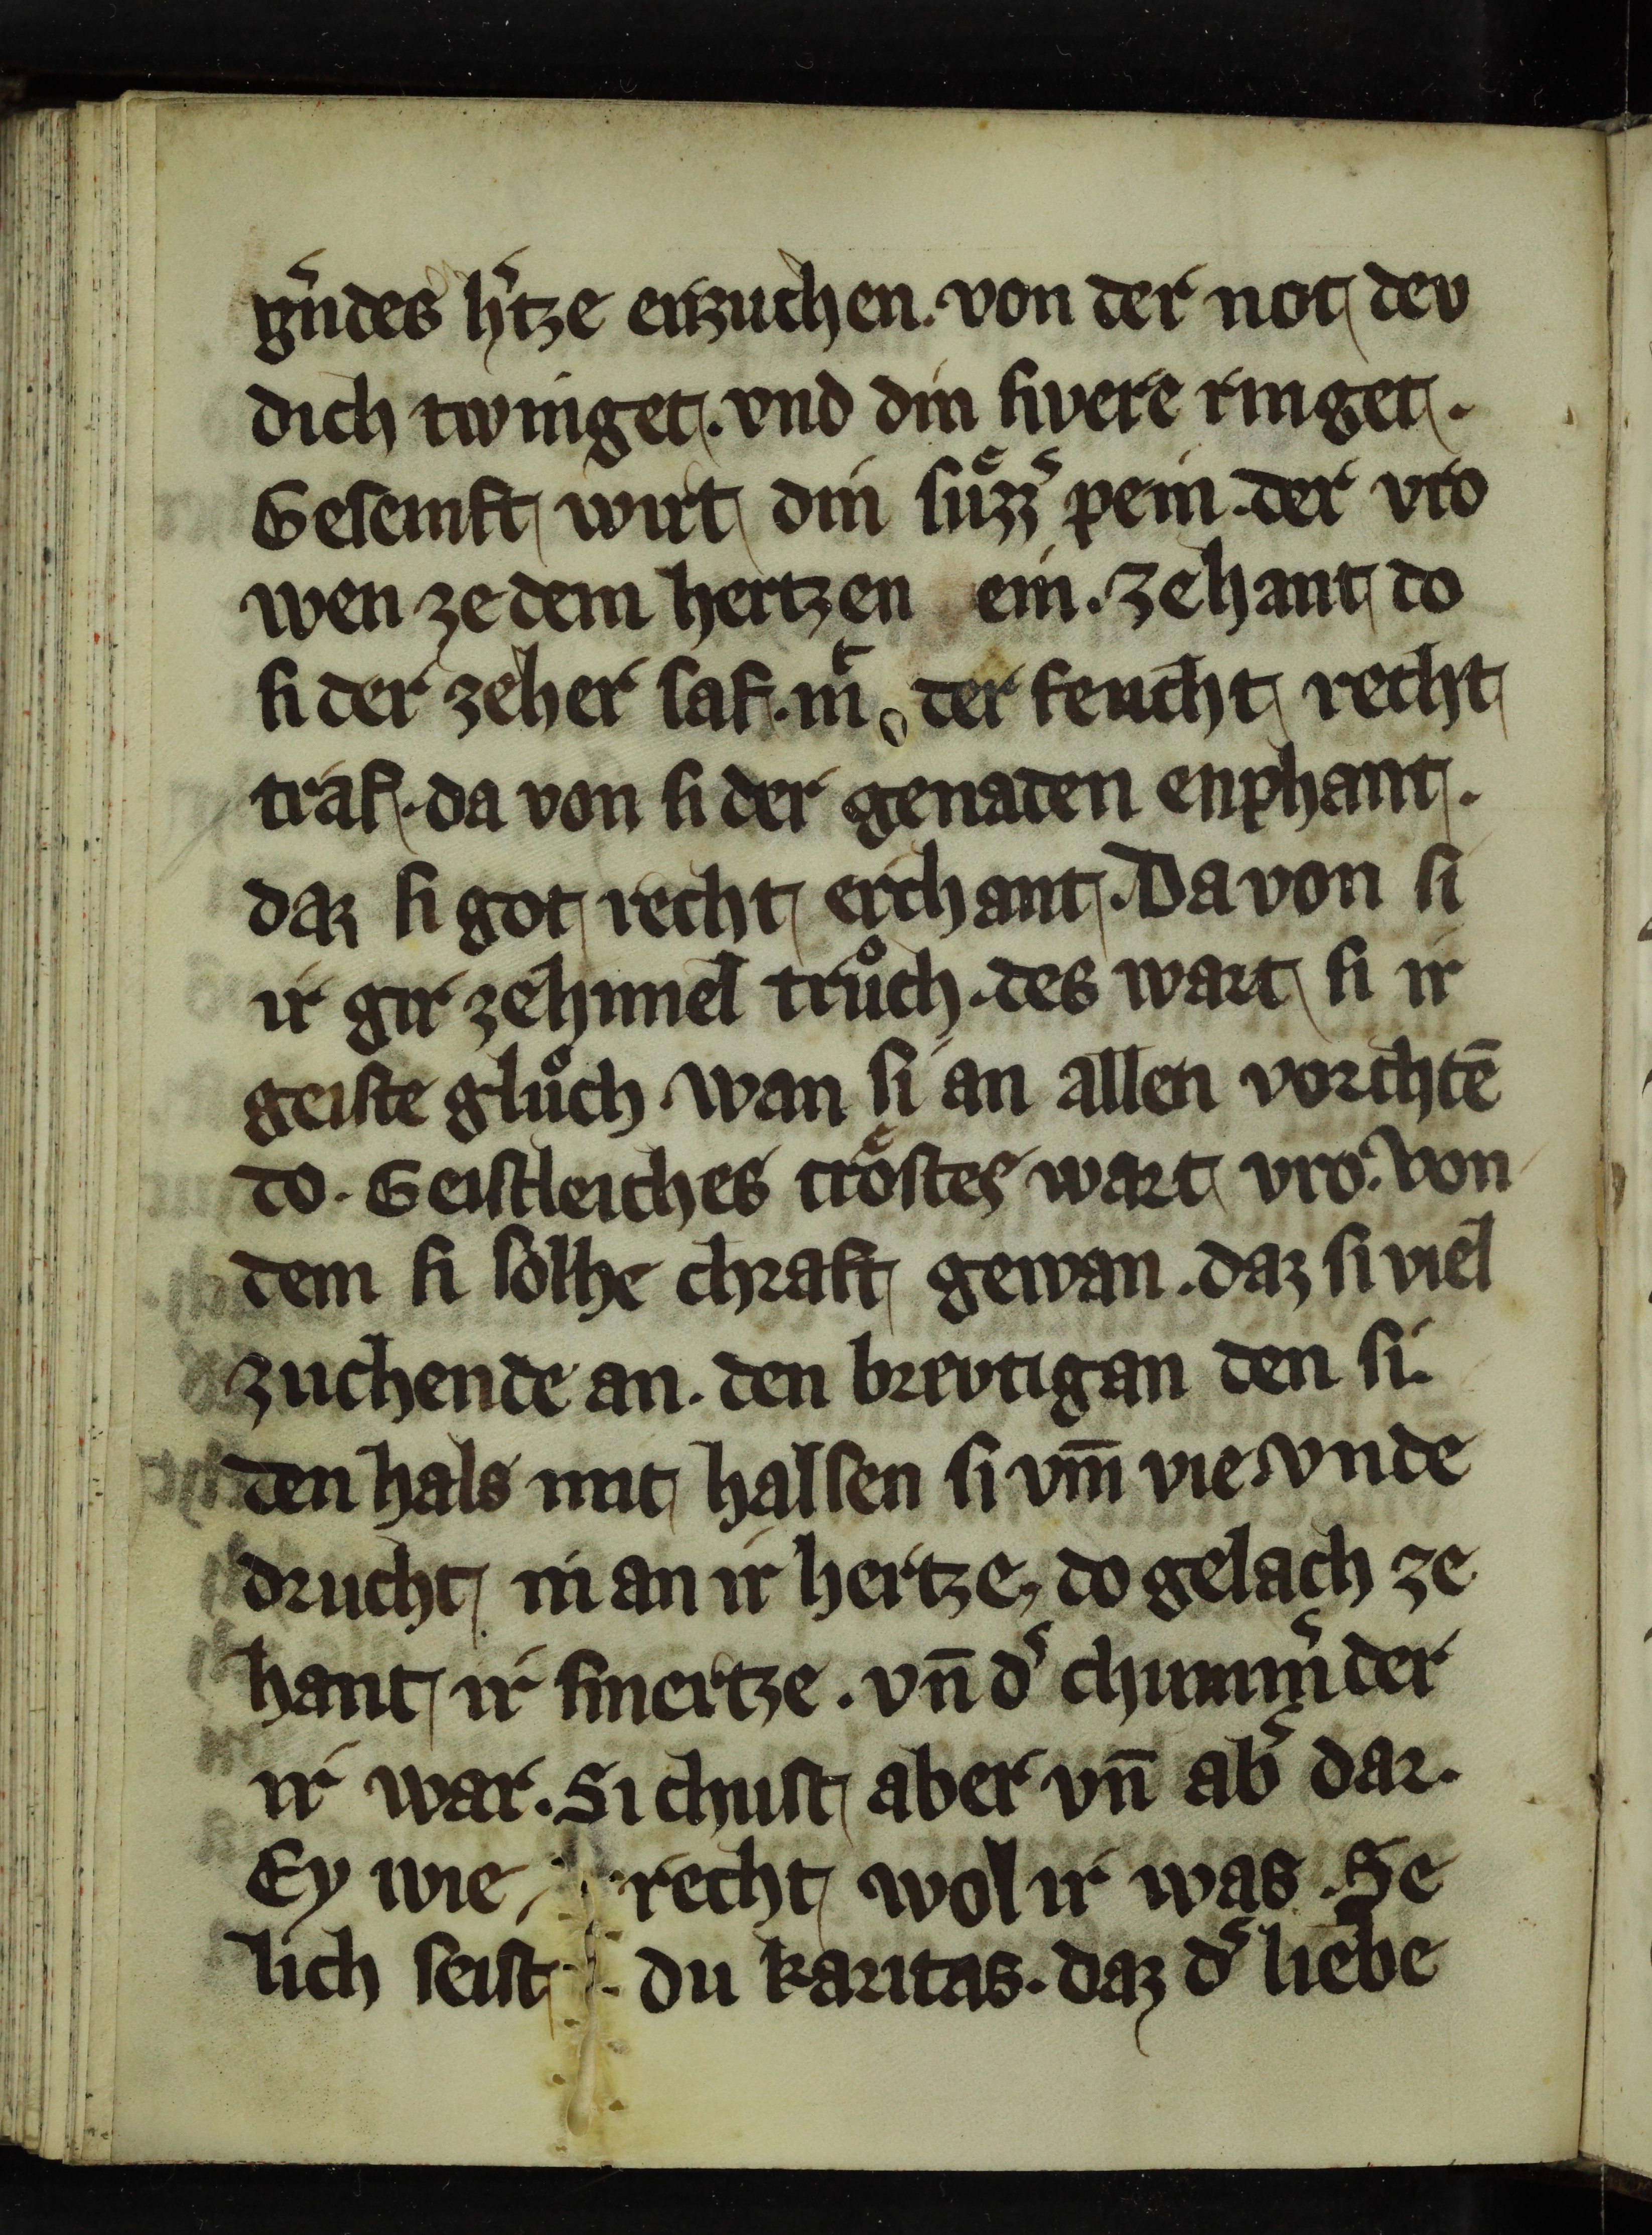 g͛ndes h͛tze erzuchen. von der not dev
dich twinget. vnd din swere ringet.
Gesemft wirt din suͤzz͛ pein. der vro
wen ze dem hertzen ein. Zehant do
si der zeher saf. mͭ der feucht recht
traf. da von si der genaden enphant.
daz si got recht erchant. Da von si
ir gir zehimel truͦch. des wart si ir
geiste gluͦch. Wan si an allen vorchtē
do. Geistleiches troͤstes wart vro. Von
dem si solhe chraft gewan. daz si viel
zuchende an. den brevtigan den si.
den hals mit halsen si vm̄ vie. Vnde
drucht in an ir hertze, do gelach ze
hant ir smertze. vn̄ d͛ chumm͛ der
ir war. Si chust aber vn̄ ab͛ dar.
Ey wie recht wol ir was. Se
lich seist du karitas. daz d͛ liebe